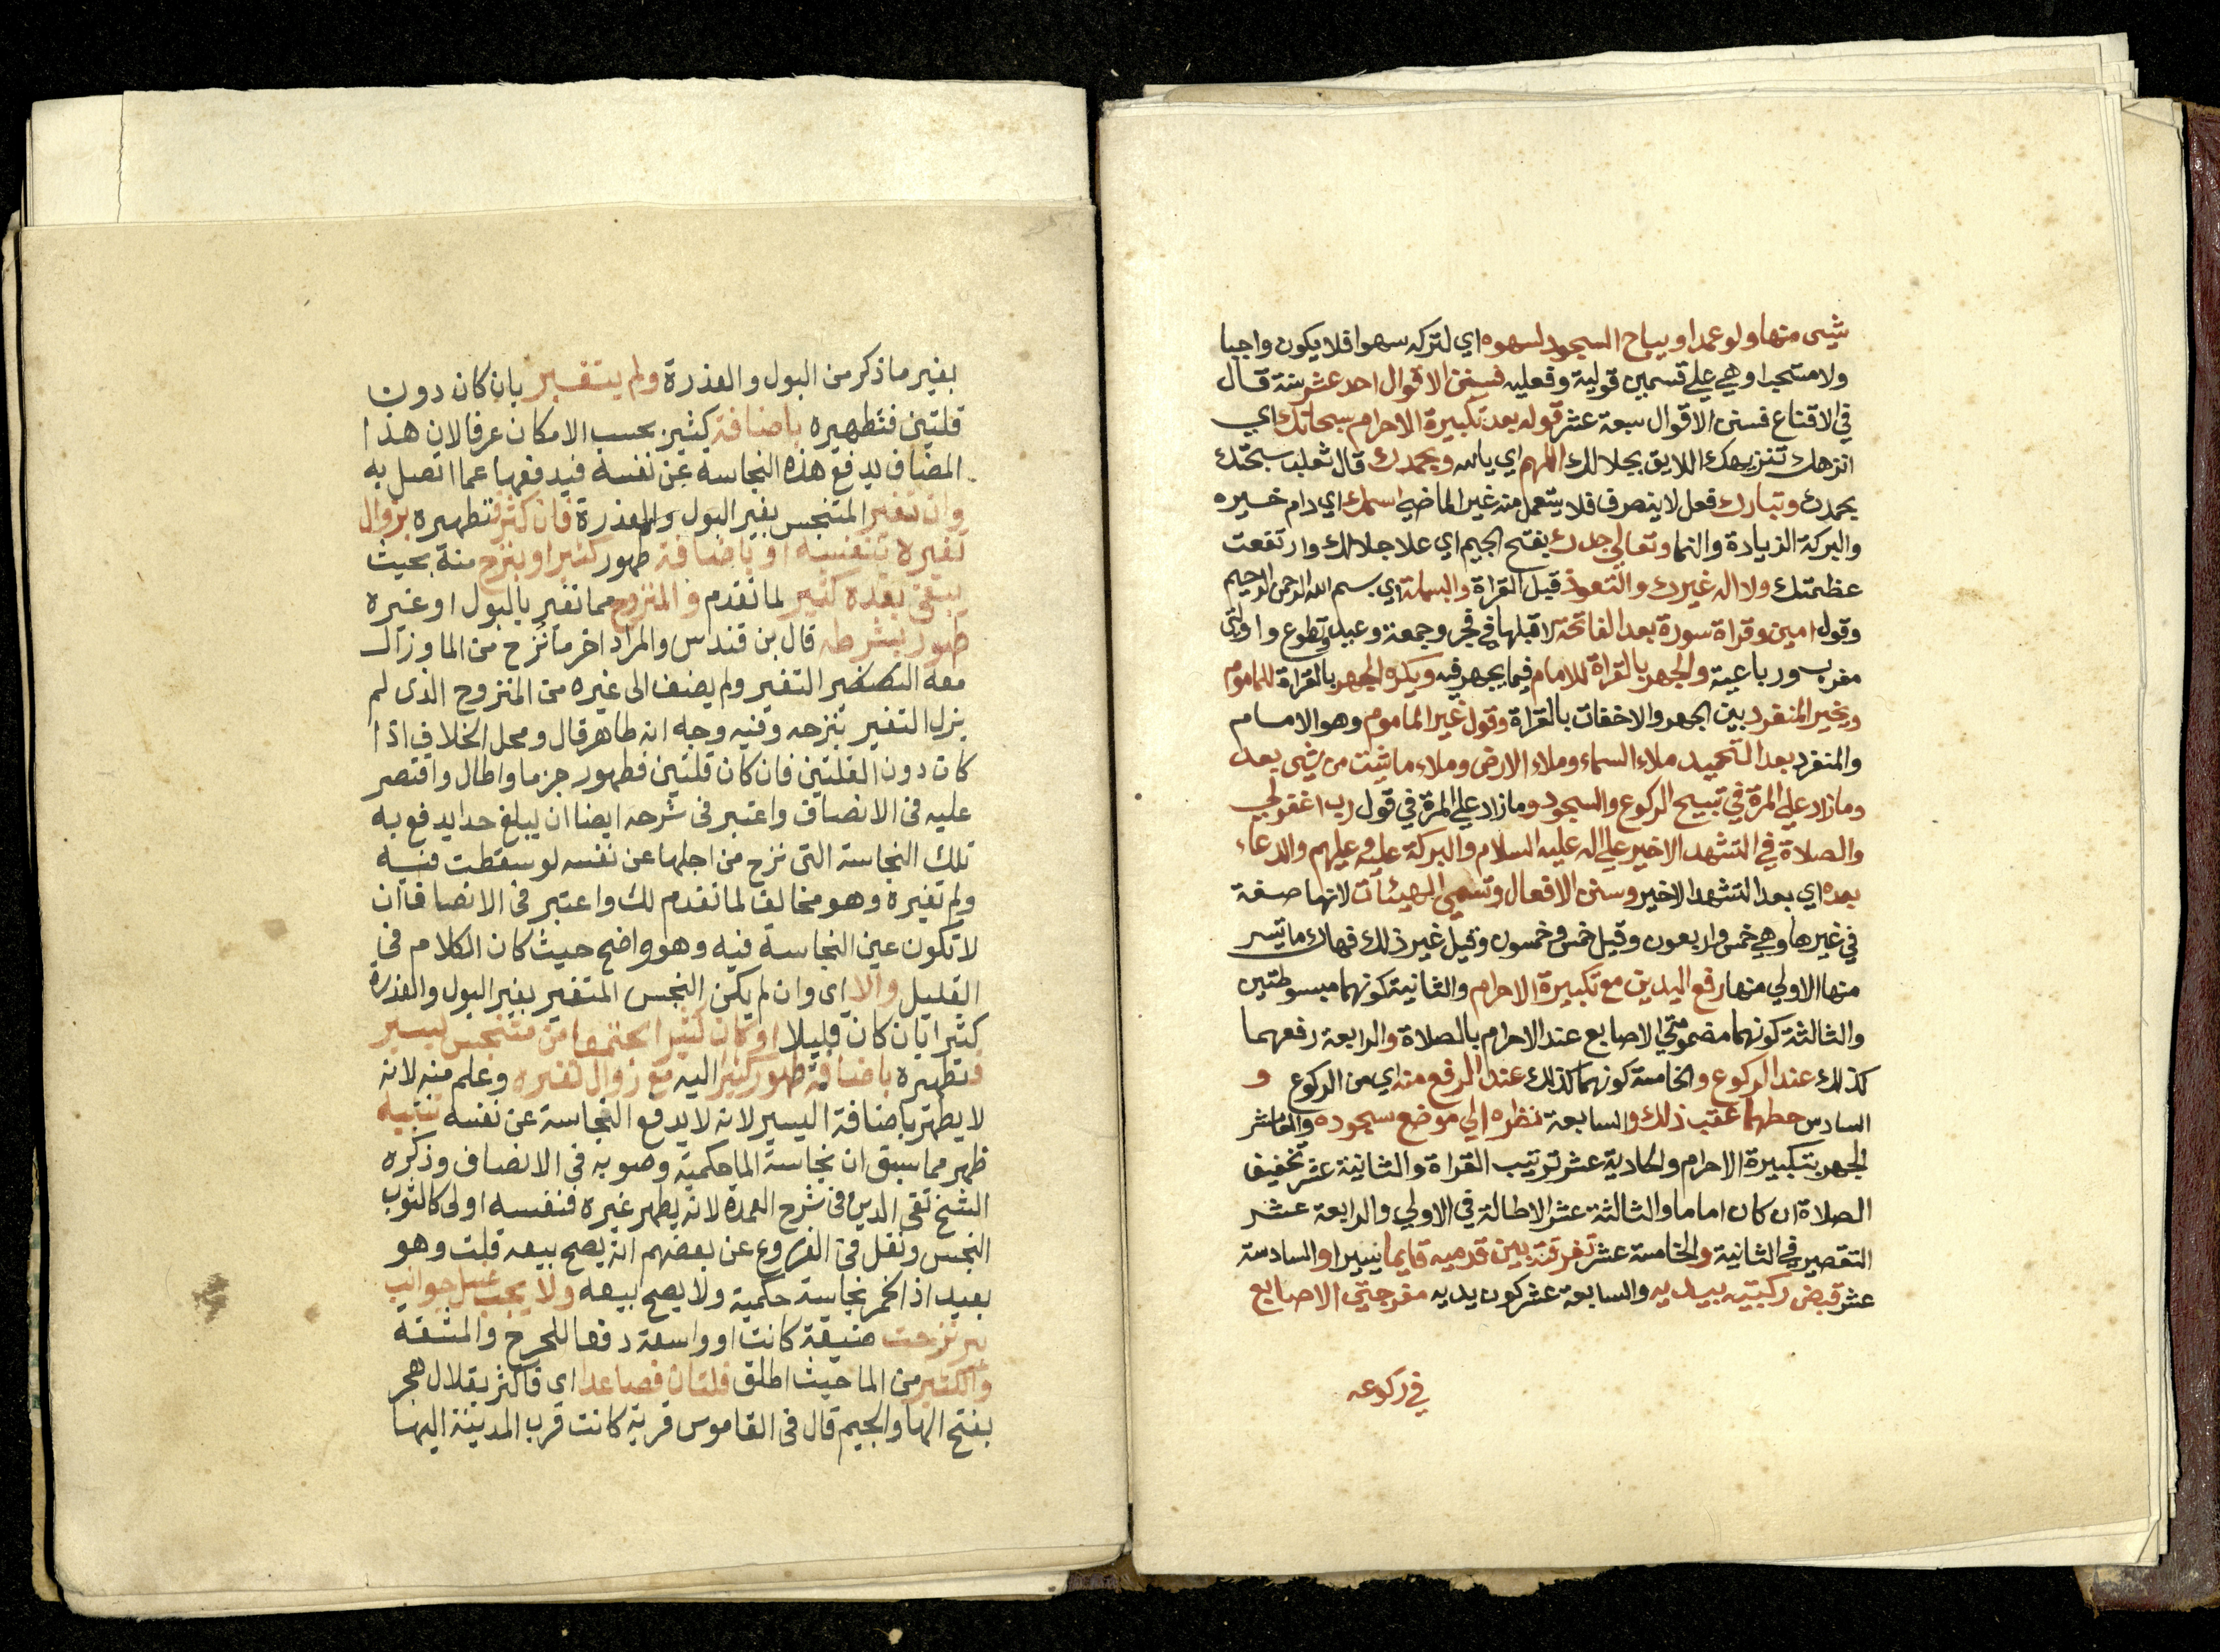 شيى منها ولو عمدا ويباح السجود لسهوه اي لتركه سهوا فلا يكون واجبا
ولا مستحبا وهي علي قسمين قولية وفعليه فسنن الاقوال احد عشر سنة قال
في الاقناع فسنن الاقوال سبعة عشر قوله بعد تكبيرة الاحرام سبحانك اي
انزهك تنزيهك اللايق بجلالك اللهم اي يا الله وبحمدك قال ثعلب سبحتك
بحمدك وتبارك فعل لا ينصرف فلا يستعمل منه غير الماضي اسمك اي دام خيره
والبركة الزيادة والنما وتعالي جدك بفتح الجيم اي علا جلالك وارتفعت
عظمتك ولا اله غيرك والتعوذ قبل القراة والبسملة اي بسم الله الرحمن الرحيم
وقول امين وقراة سورة بعد الفاتحة لا قبلها في فجر وجمعة وعيد وتطوع واولتي
مغرب ورباعية والجهر بالقراة للامام فيما يجهر فيه ويكره الجهر بالقراة للماموم
ويخير المنفرد بين الجهر والاخفات بالقراة وقول غير الماموم وهو الامام
والمنفرد بعد التحميد ملاء السماء وملاء الارض وملاء ما شئت من شيى بعد
وما زاد علي المرة في تسبيح الركوع والسجود وما زاد علي المرة في قول رب اغفر لي
والصلاة في التشهد الاخير علي اله عليه السلام والبركة عليه وعليهم والدعاء
بعده اي بعد التشهد الاخير وسنن الافعال وتسمي الهيئآت لانها صفة
في غيرها وهي خمس واربعون وقيل خمس وخمسون وقيل غير ذلك فهاك ما تيسر
منها الاولي منها رفع اليدين مع تكبيرة الاحرام والثانية كونهما مبسوطتين
والثالثة كونهما مضمومتي الاصابع عند الاحرام بالصلاة والرابعة رفعهما
كذلك عند الركوع والخامسة كونهما كذلك عند الرفع منه اي من الركوع و
السادس حطهما عقب ذلك والسابعة نظره الي موضع سجوده والعاشر
الجهر بتكبيرة الاحرام والحادية عشر ترتيب القراة والثانية عشر تخفيف
الصلاة ان كان اماما والثالثة عشر الاطالة في الاولي والرابعة عشر
التقصير في الثانية والخامسة عشر تفرقته بين قدميه قايما يسيرا والسادسة
عشر قبض ركبتيه بيديه والسابعة عشر كون يديه مفرجتي الاصابع
في ركوعه
بغير ما ذكر من البول والعذرة ولم يتغير بان كان دون
قلتين فتطهيره باضافة كثير بحسب الامكان عرفا لان هذا
المضاف يدفع هذه النجاسة عن نفسه فيدفعها عما اتصل به
وان تغير المتنجس بغير البول والعذرة فان كثر فتطهيره بزوال
تغيره بنفسه او باضافة طهور كثير او بنزح منه بحيث
يبقي بعده كثير لما تقدم والمنزوح مما تغير بالبول او غيره
طهور بشرطه قال بن قندس والمراد اخر ما نُزح من الما وزال
معه التغير ولم يضف الى غيره من المنزوح الذى لم
يزل التغير بنزحه وفيه وجه انه طاهر قال ومحل الخلاف اذا
كان دون القلتين فان كان قلتين فطهور جزما واطال واقتصر
عليه فى الانصاف واعتبر فى شرحه ايضا ان يبلغ حدا يدفع به
تلك النجاسة التى نزح من اجلها عن نفسه لو سقطت فيه
ولم تغيره وهو مخالف لما تقدم لك واعتبر فى الانصاف ان
لا تكون عين النجاسة فيه وهو واضح حيث كان الكلام في
القليل والا اى وان لم يكن النجس المتغير بغير البول والعذرة
كثيرا بان كان قليلا او كان كثيرا مجتمعا من متنجس يسير
فتطهيره باضافة طهور كثير اليه مع زوال تغيره وعلم منه لانه
لا يطهر باضافة اليسير لانه لا يدفع النجاسة عن نفسه تنبيه
ظهر مما سبق ان نجاسة الما حكمية وصوبه في الانصاف وذكره
الشيخ تقى الدين فى شرح العمدة لانه يطهر غيره فنفسه اولى كالثوب
النجس ونقل فى الفروع عن بعضهم انه يصح بيعه قلت وهو
بعيد اذ الخمر نجاسة حكمية ولا يصح بيعه ولا يجب غسل جوانب
بير نزحت ضيقة كانت او واسعة دفعا للحرج والمشقة
والكثير من الما حيث اطلق قلتان فصاعدا اى فاكثر بقلال هجر
بفتح الها والجيم قال فى القاموس قرية كانت قرب المدينة اليها